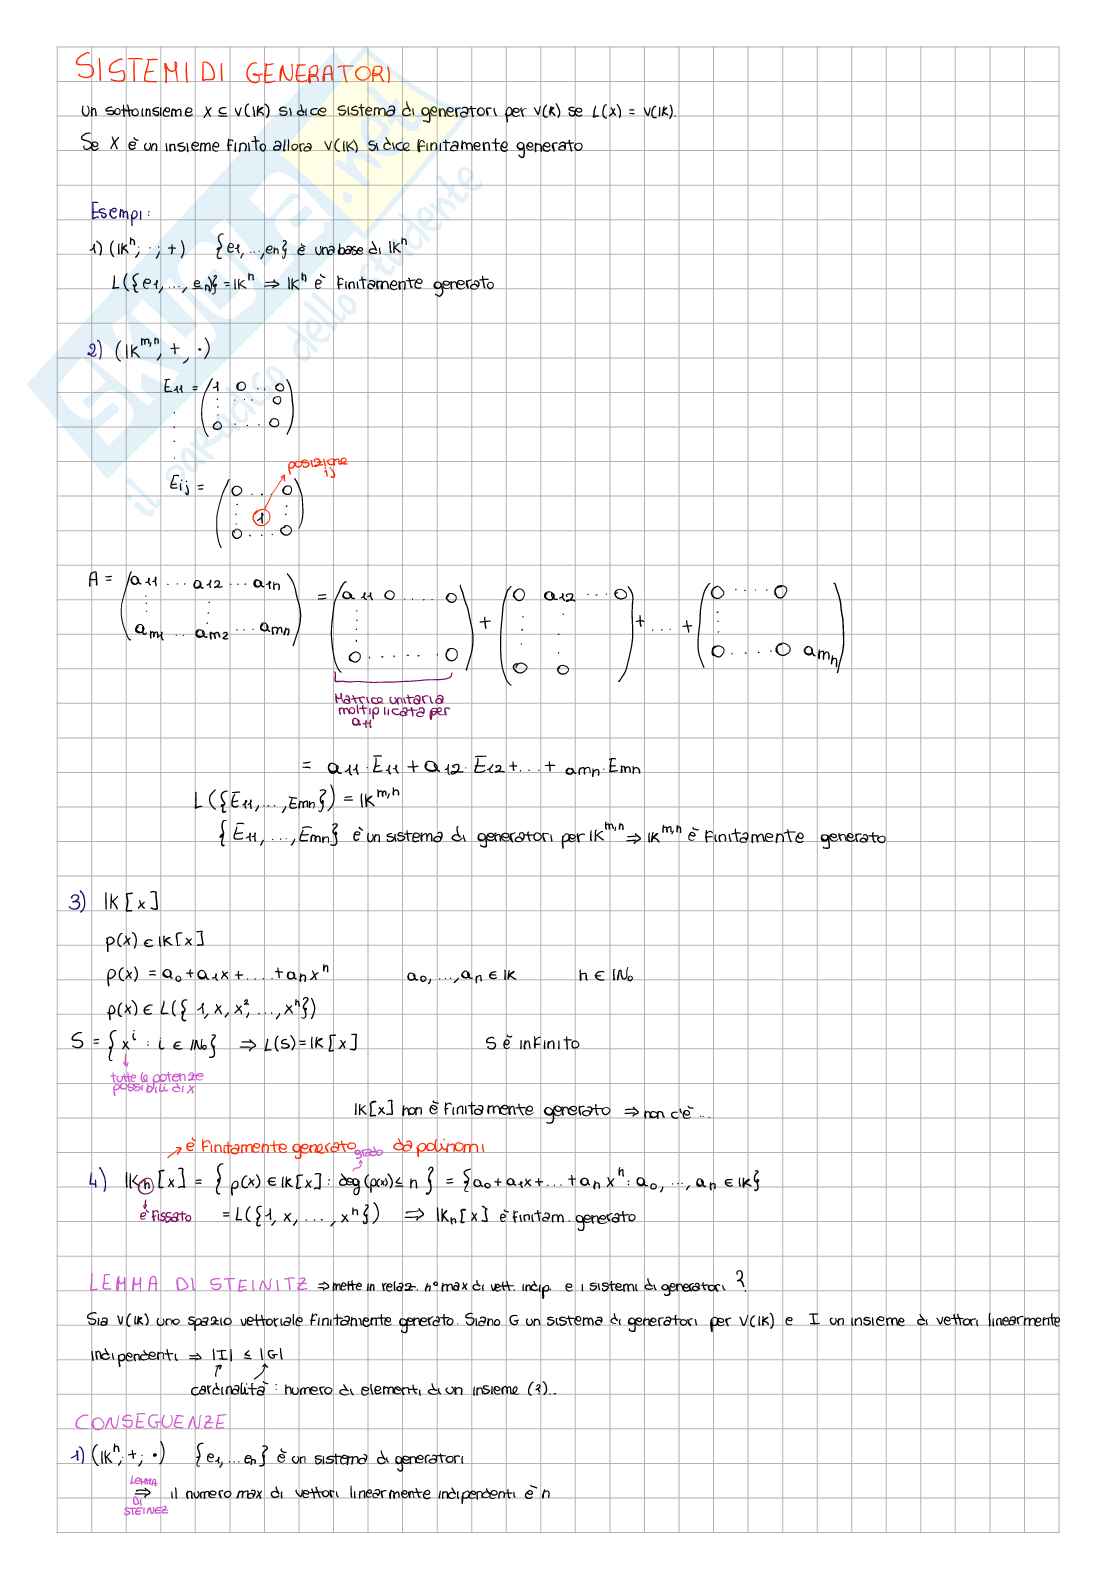 SISTEMI DI GENERATORI
Un sottoinsieme X ⊆ V(IK) si dice sistema di generatori per V(K) se L(X) = V(K).
Se X è un insieme finito allora V(IK) si dice finitamente generato
Esempi:
1) (IKⁿ; ·; +) {e1, ..., en} è una base di IKⁿ
L({e1, ..., en}) = IKⁿ ⇒ IKⁿ è finitamente generato
2) (IK^{m,n}, +, ·)
E11 = (1 0 .. 0
: .... 0
0 ... 0)
Eij = (0 .. 0
: 1 :
0 ... 0)
posizione ij
A = (a11 ... a12 ... a1n
: :
am1 ... am2 ... amn) = (a11 0 .... 0
:
0 ...... 0) + (0 a12 ... 0
: :
0 0) + ... + (0 .... 0
:
0 .... 0 amn)
Matrice unitaria
moltiplicata per
a11
= a11 · E11 + a12 · E12 + ... + amn · Emn
L({E11, ..., Emn}) = IK^{m,n}
{E11, ..., Emn} è un sistema di generatori per IK^{m,n} ⇒ IK^{m,n} è finitamente generato
3) IK[x]
p(x) ∈ IK[x]
p(x) = a0 + a1x + .... + anxⁿ a0, ..., an ∈ IK n ∈ IN0
p(x) ∈ L({1, x, x², ..., xⁿ})
S = {x^i : i ∈ IN0} ⇒ L(S) = IK[x] S è infinito
tutte le potenze
possibili di x
IK[x] non è finitamente generato ⇒ non c'è ..
→ è finitamente generato da polinomi
grado
4) IKn[x] = {p(x) ∈ IK[x] : deg(p(x)) ≤ n} = {a0 + a1x + ... + anxⁿ : a0, ..., an ∈ IK}
è fissato = L({1, x, ..., xⁿ}) ⇒ IKn[x] è finitam. generato
LEMMA DI STEINITZ ⇒ mette in relaz. n° max di vett. indip. e i sistemi di generatori ?
Sia V(IK) uno spazio vettoriale finitamente generato. Siano G un sistema di generatori per V(IK) e I un insieme di vettori linearmente
indipendenti ⇒ |I| ≤ |G|
cardinalità : numero di elementi di un insieme (?)..
CONSEGUENZE
1) (IKⁿ; +; ·) {e1, ... en} è un sistema di generatori
LEMMA
DI
STEINEZ
⇒ il numero max di vettori linearmente indipendenti è n
SKUOLA.net
il paradiso dello studente